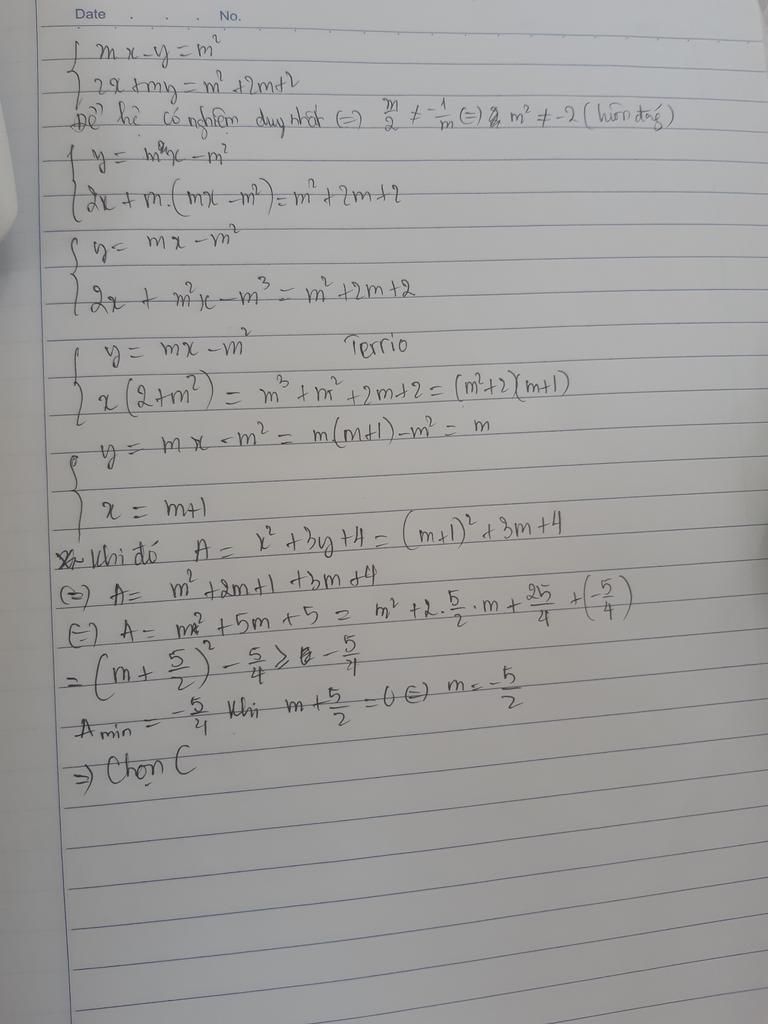 Date . . . No.
mx - y = m²
2x + my = m² + 2m + 2
Để hệ có nghiệm duy nhất (=) m/2 ≠ -1/m (=) m² ≠ -2 (luôn đúng)
y = mx - m²
2x + m.(mx - m²) = m² + 2m + 2
y = mx - m²
2x + m²x - m³ = m² + 2m + 2
y = mx - m² Terrio
x(2+m²) = m³ + m² + 2m + 2 = (m²+2)(m+1)
y = mx - m² = m(m+1) - m² = m
x = m+1
Khi đó A = x² + 3y + 4 = (m+1)² + 3m + 4
(=) A = m² + 2m + 1 + 3m + 4
(=) A = m² + 5m + 5 = m² + 2.5/2.m + 25/4 + (-5/4)
= (m + 5/2)² - 5/4 ≥ -5/4
Amin = -5/4 khi m + 5/2 = 0 (=) m = -5/2
=> Chọn C